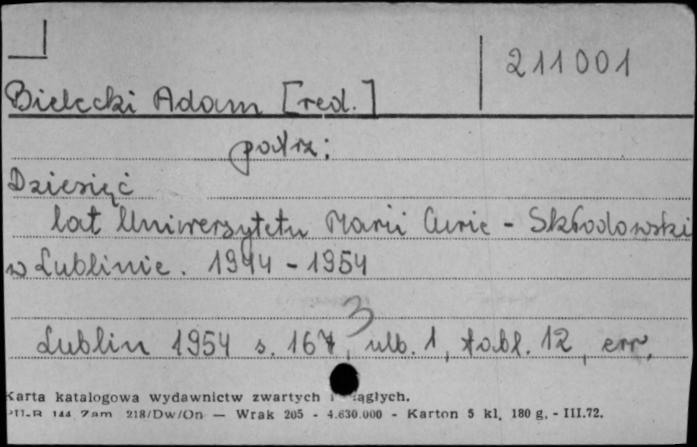 211001
Bielecki Adam [red.]
patrz:
Dziesięć
lat Uniwersytetu Marii Curie - Skłodowski
w Lublinie. 1944 - 1954
3
Lublin 1954 s. 167, ulb. 1, tabl. 12, err.
Karta katalogowa wydawnictw zwartych i ciągłych.
PU-B 144 Zam. 218/Dw/On — Wrak 205 - 4.630.000 - Karton 5 kl. 180 g. - III.72.